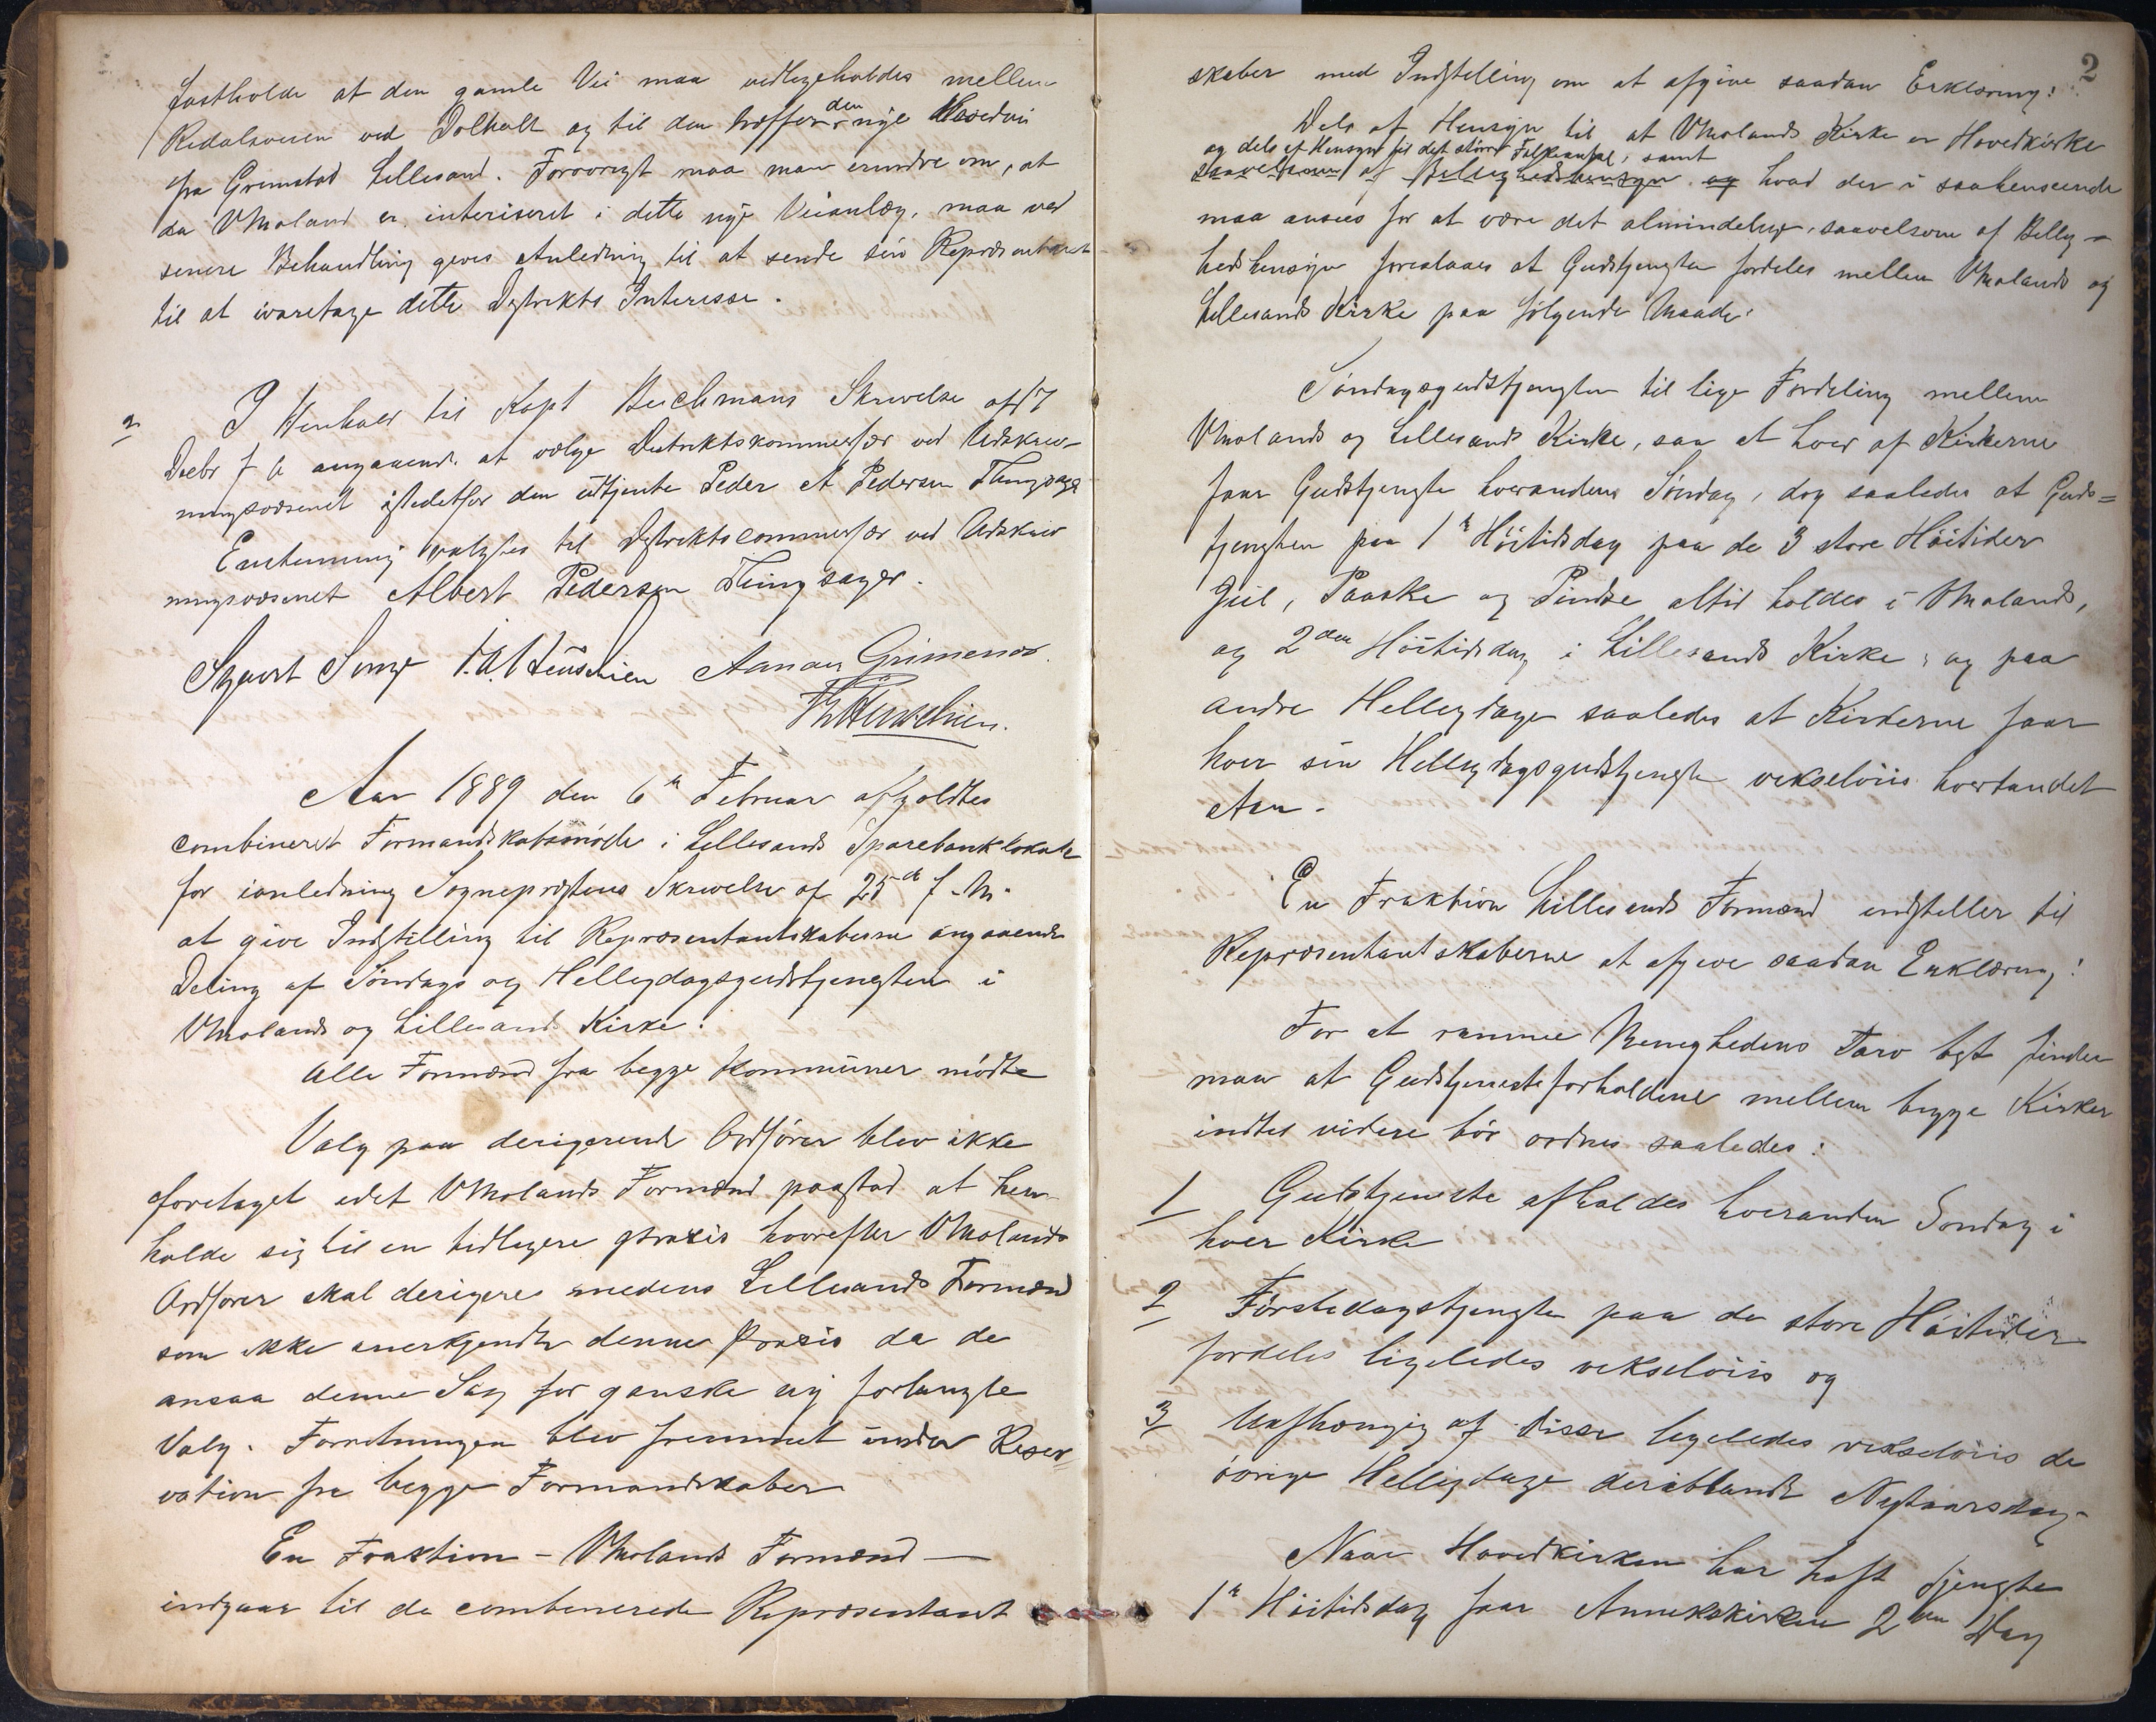 fastholde at den gamle Vei maa vedligeholdes mellem
Redalsveien ved Dolholt og til den træffer den nye Hovedvei
fra Grimstad Lillesand. Forøvrigt maa man erindre om, at
da VMoland er interiseret i dette nye Veianlæg, maa ved
senere Behandling gives Anledning til at sende sin Repræsentant
til at ivaretage dette Distrikts Interesse.
2
I Henhold til Kapt Beichmans Skrivelse af 17
Decbr f A angaaende at vælge Distriktskommissær ved Udskriv-
ningsvæsenet istedetfor den udtjente Peder A Pedersen Tingsager
Enstemmig valgtes til Distriktscommissær ved Udskriv
ningsvæsenet Albert Pedersen Tingsager.
Sygurt Sørup Aanon Grimenes
Aar 1889 den 6te Februar afholdtes
combineret Formandskabsmøde i Lillesands Sparebanklokale
for ianledning Sogneprestens Skrivelse af 25de f. M.
at give Indstilling til Repræsentantskaberne angaaende
Deling af Søndags og Helligdagsgudstjenesten i
VMolands og Lillesands Kirke.
Alle Formænd fra begge Kommuner mødte
Valg paa derigerende Ordfører blev ikke
foretaget idet VMolands Formænd paastod at hen-
holde sig til en tidligere praxis hvorefter VMolands
Ordfører skal derigere medens Lillesands Formænd
som ikke anerkjendte denne Praxis da de
ansaa denne Sag for ganske ny forlangte
Valg. Forretningen blev fremmet under Reser=
vation fra begge Formandskaber
En Fraktion – VMolands Formænd —
indgaar til de combinerede Repræsentant
2
skaber med Indstilling om at afgive saadan Erklæring:
Dels af Hensyn til at VMolands Kirke er Hovedkirke
og dels af Hensyn til det større Folkeantal, samt
saavelsom af Billighedshensyn og hvad der i saahenseende
maa ansees for at være det almindelige, saavelsom af Billig-
hedshensyn foreslaaes at Gudstjenesten fordeles mellem VMolands og
Lillesands Kirke paa følgende Maade:
Søndagsgudstjenesten til lige Fordeling mellem
VMolands og Lillesands Kirke, saa at hver af Kirkerne
faar Gudstjeneste hverandens Søndag, dog saaledes at Guds=
tjenesten paa 1te Høitidsdag paa de 3 store Høitider
Jul, Paaske og Pindse altid holdes i VMolands,
og 2den Høitidsdag i Lillesands Kirke, og paa
andre Helligdage saaledes at Kirkerne faar
hver sin Helligdagsgudstjeneste vekselviis hvertandet
Aar.
En Fraktion Lillesands Formænd indstiller til
Repræsentantskaberne at afgive saadan Erklæring:
For at ramme Menighedens Tarv best finder
man at Gudstjenesteforholdene mellem begge Kirker
indtil videre bør ordnes saaledes:
1 Gudstjeneste afholdes hveranden Søndag i
hver Kirke
2 Førstedagstjeneste paa de store Høitider
fordeles ligeledes vekselviis og
3 Uafhængig af disse ligeledes vekselviis de
øvrige Helligdage deriblandt Nytaarsdag.
Naar Hovedkirken har haft Tjeneste
1te Høitidsdag faar Annekskirken 2den Dag